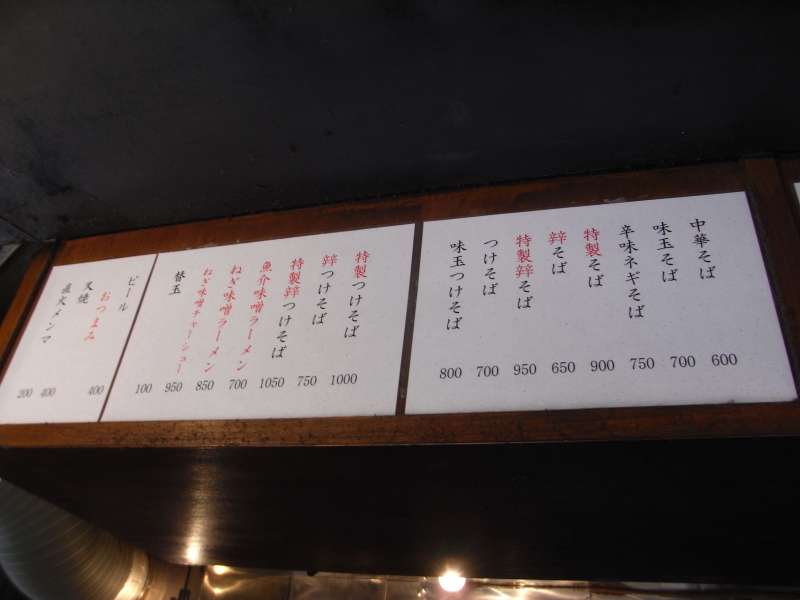 中華そば 600
味玉そば 700
辛味ネギそば 750
特製そば 900
辡そば 650
特製辡そば 950
つけそば 700
味玉つけそば 800
特製つけそば 1000
辡つけそば 750
特製辡つけそば 1050
魚介味噌ラーメン 700
ねぎ味噌ラーメン 850
ねぎ味噌チャーシューメン 950
替玉 100
ビール 400
おつまみ
叉焼 400
直火メンマ 200